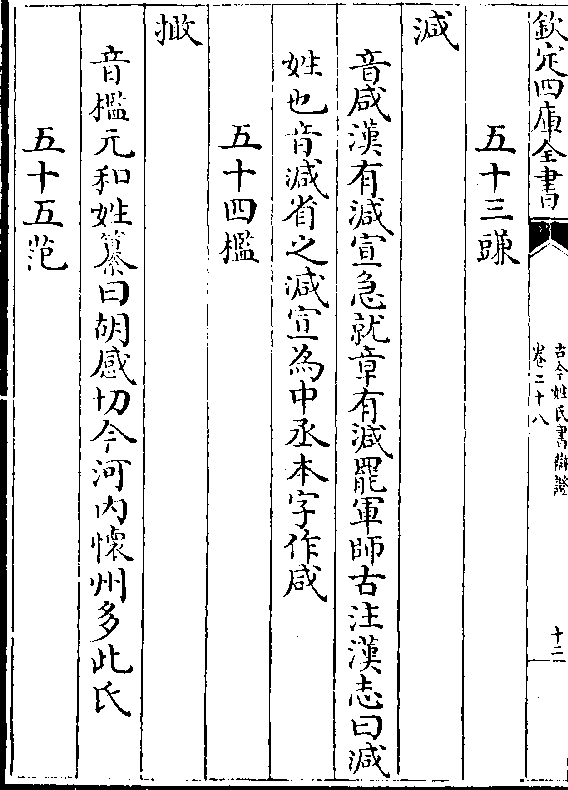 欽定四庫全書
古今姓氏書辯證
卷二十八
十二
五十三豏
減
音咸漢有減宣急就章有減罷軍師古注漢志曰減
姓也音減省之減宣為中丞本字作咸
五十四檻
撖
音檻元和姓纂曰胡感切今河内懷州多此氏
五十五范